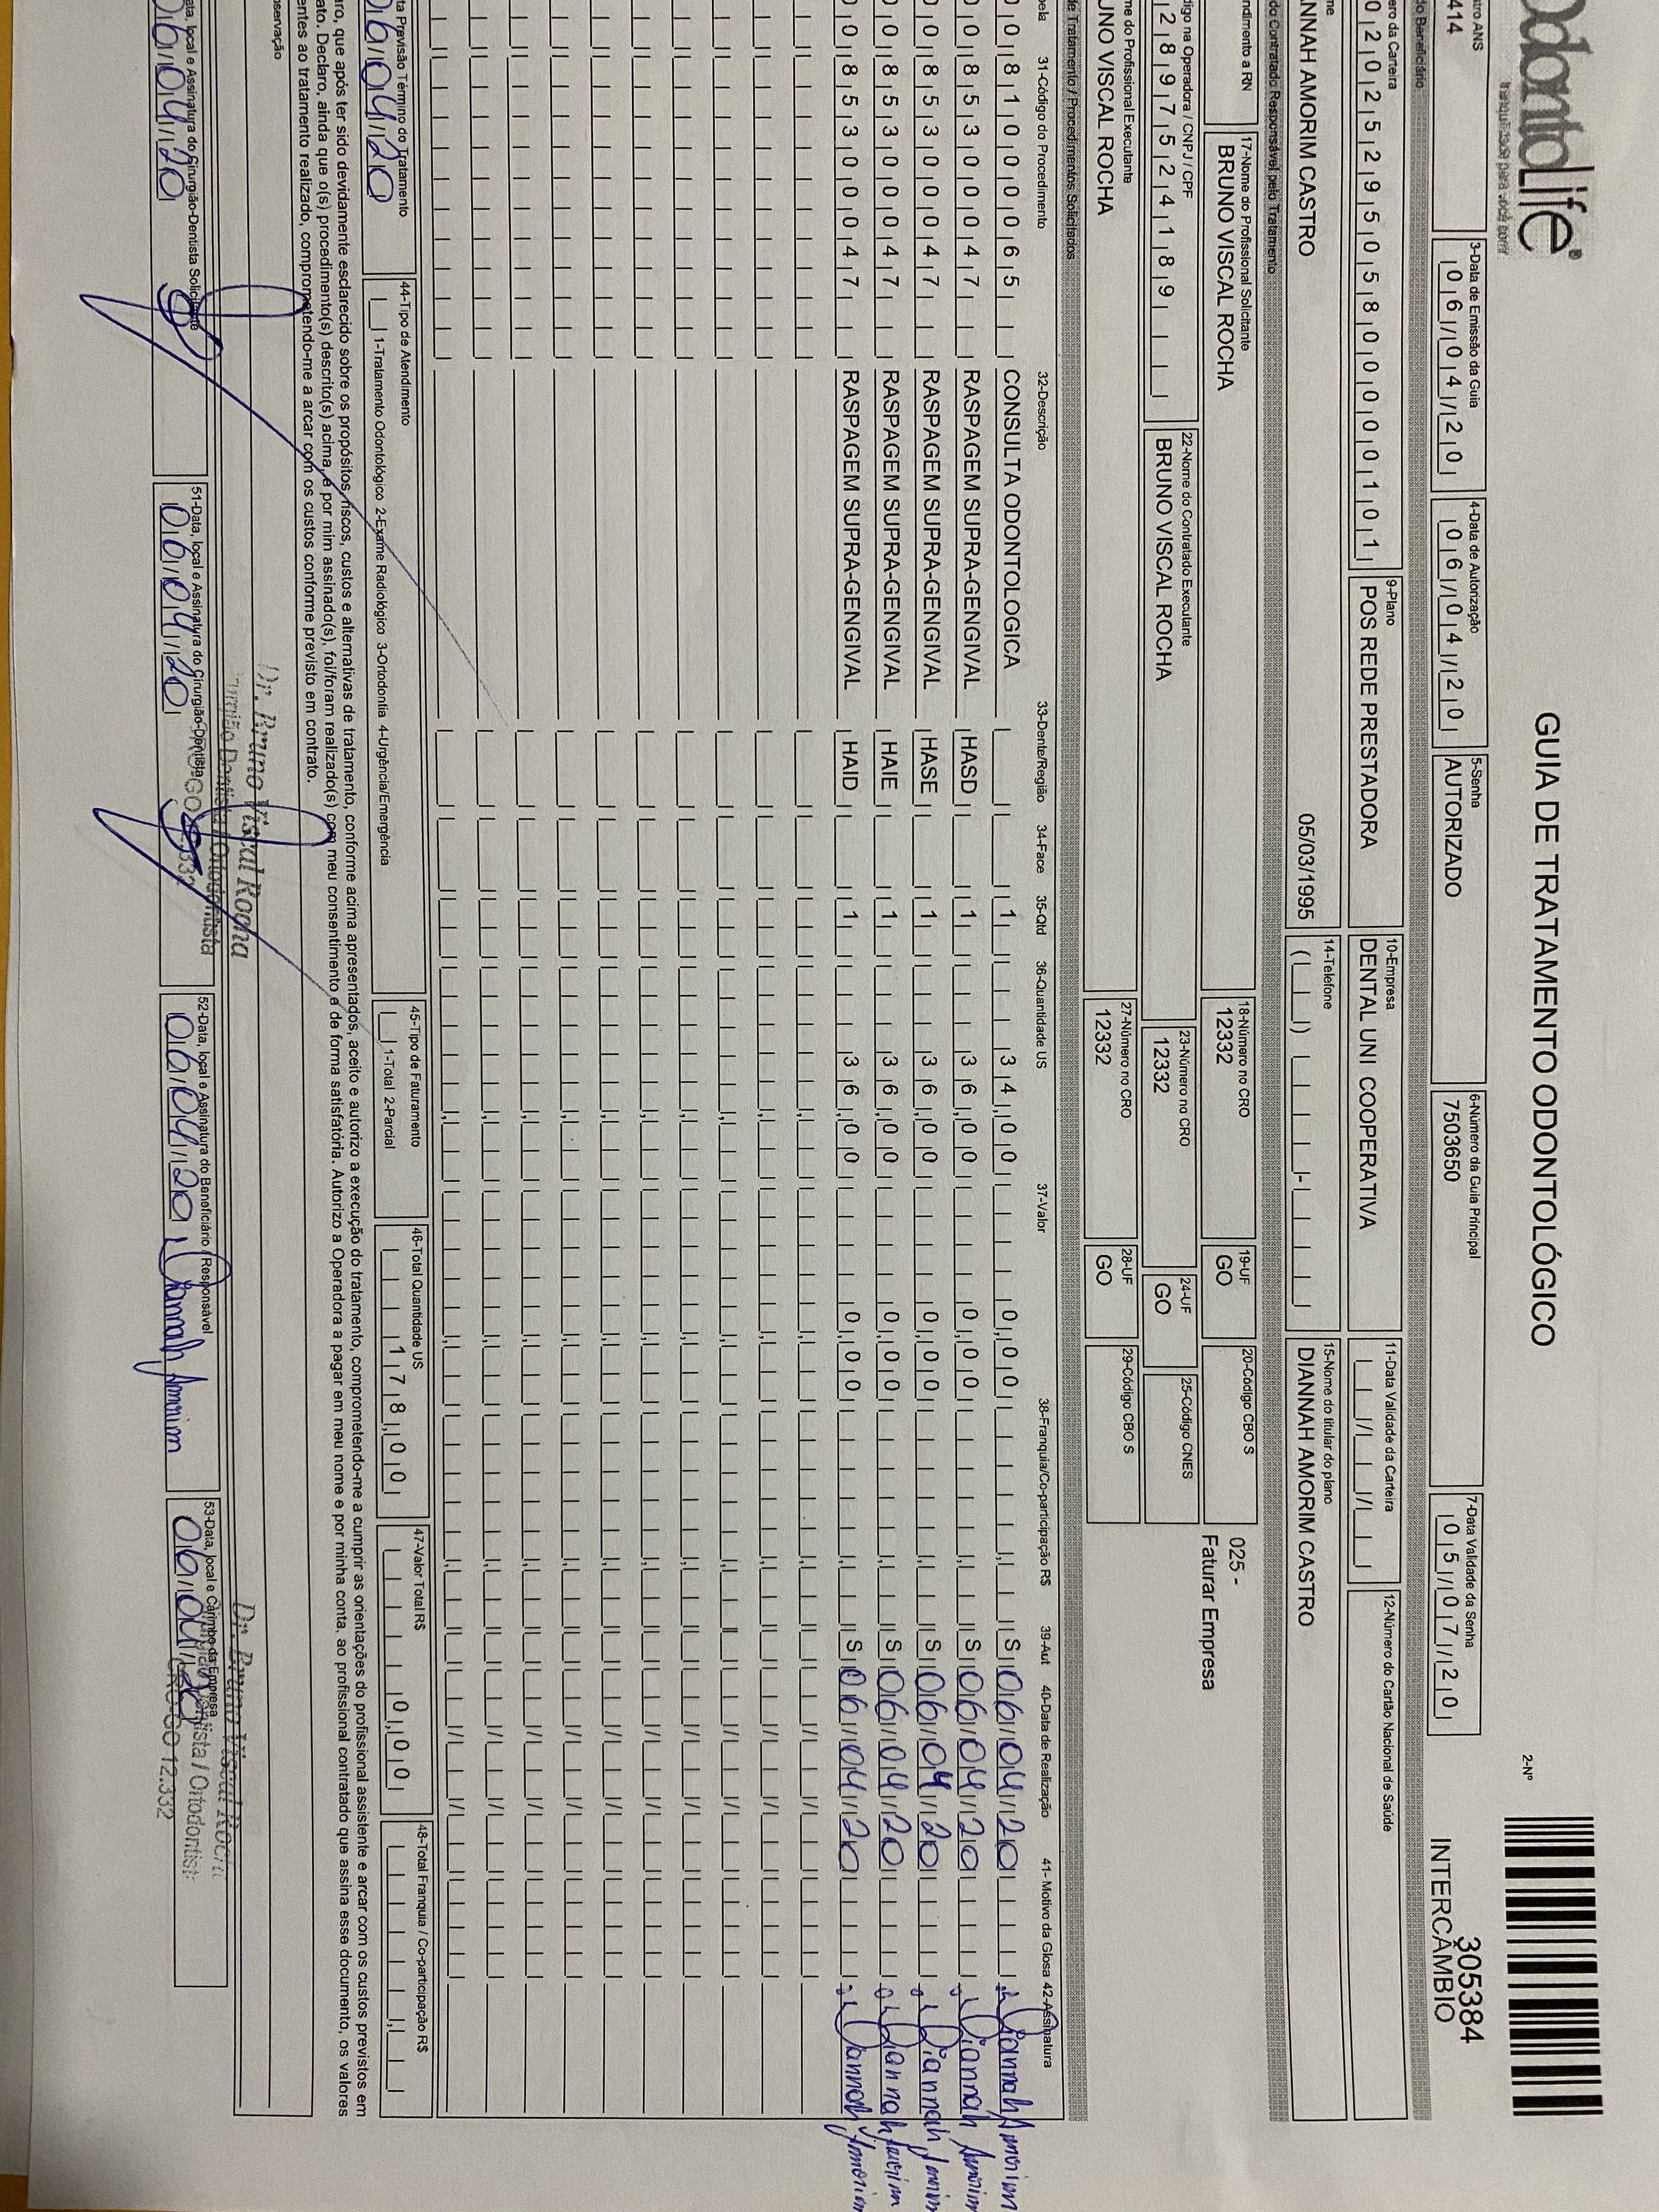 OdontoLife®
tranquilidade para você sorrir
GUIA DE TRATAMENTO ODONTOLÓGICO
2-Nº
305384
INTERCÂMBIO
tro ANS
414
3-Data de Emissão da Guia
06/04/20
4-Data de Autorização
06/04/20
5-Senha
AUTORIZADO
6-Número da Guia Principal
7503650
7-Data Validade da Senha
05/07/20
do Beneficiário
ero da Carteira
02025295058000001 01
9-Plano
POS REDE PRESTADORA
10-Empresa
DENTAL UNI COOPERATIVA
11-Data Validade da Carteira
12-Número do Cartão Nacional de Saúde
me
ANNAH AMORIM CASTRO
05/03/1995
14-Telefone
15-Nome do titular do plano
DIANNAH AMORIM CASTRO
do Contratado Responsável pelo Tratamento
ndimento a RN
17-Nome do Profissional Solicitante
BRUNO VISCAL ROCHA
18-Número no CRO
12332
19-UF
GO
20-Código CBO S
025 -
Faturar Empresa
digo na Operadora / CNPJ / CPF
2897524189
22-Nome do Contratado Executante
BRUNO VISCAL ROCHA
23-Número no CRO
12332
24-UF
GO
25-Código CNES
me do Profissional Executante
UNO VISCAL ROCHA
27-Número no CRO
12332
28-UF
GO
29-Código CBO S
de Tratamento / Procedimentos Solicitados
bela 31-Código do Procedimento 32-Descrição 33-Dente/Região 34-Face 35-Qtd 36-Quantidade US 37-Valor 38-Franquia/Co-participação R$ 39-Aut 40-Data de Realização 41- Motivo da Glosa 42-Assinatura
0 0 81000065 CONSULTA ODONTOLOGICA 1 34,00 0,00 S 06/04/20 Diannah Amorim
0 0 85300047 RASPAGEM SUPRA-GENGIVAL HASD 1 36,00 0,00 S 06/04/20 Diannah Amorim
0 0 85300047 RASPAGEM SUPRA-GENGIVAL HASE 1 36,00 0,00 S 06/04/20 Diannah Amorim
0 0 85300047 RASPAGEM SUPRA-GENGIVAL HAIE 1 36,00 0,00 S 06/04/20 Diannah Amorim
0 0 85300047 RASPAGEM SUPRA-GENGIVAL HAID 1 36,00 0,00 S 06/04/20 Diannah Amorim
ta Previsão Término do Tratamento
06/04/20
44-Tipo de Atendimento
1-Tratamento Odontológico 2-Exame Radiológico 3-Ortodontia 4-Urgência/Emergência
45-Tipo de Faturamento
1-Total 2-Parcial
46-Total Quantidade US
178,00
47-Valor Total R$
0,00
48-Total Franquia / Co-participação R$
ro, que após ter sido devidamente esclarecido sobre os propósitos, riscos, custos e alternativas de tratamento, conforme acima apresentados, aceito e autorizo a execução do tratamento, comprometendo-me a cumprir as orientações do profissional assistente e arcar com os custos previstos em
ato. Declaro, ainda que o(s) procedimento(s) descrito(s) acima, e por mim assinado(s), foi/foram realizado(s) com meu consentimento e de forma satisfatória. Autorizo a Operadora a pagar em meu nome e por minha conta, ao profissional contratado que assina esse documento, os valores
entes ao tratamento realizado, comprometendo-me a arcar com os custos conforme previsto em contrato.
bservação
Dr. Bruno Viscal Rocha
Cirurgião Dentista / Ortodontista
CRO-GO 12.332
Dr. Bruno Viscal Rocha
Cirurgião Dentista / Ortodontist
CRO-GO 12.332
ata, local e Assinatura do Cirurgião-Dentista Solicitante
06/04/20
51-Data, local e Assinatura do Cirurgião-Dentista
06/04/20
52-Data, local e Assinatura do Beneficiário / Responsável
06/04/20 Diannah Amorim
53-Data, local e Carimbo da Empresa
06/04/20